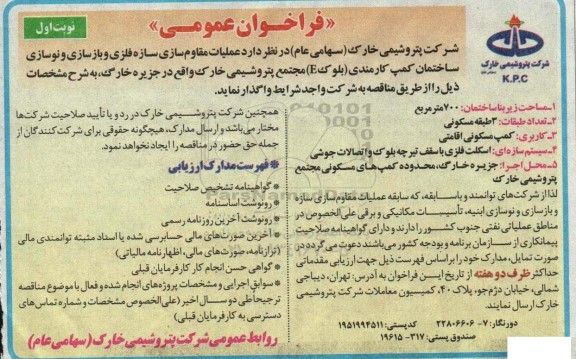 نوبت اول
«فراخوان عمومی»
شرکت پتروشیمی خارک
K.P.C
شرکت پتروشیمی خارک (سهامی عام) در نظر دارد عملیات مقاوم سازی سازه فلزی و بازسازی و نوسازی
ساختمان کمپ کارمندی (بلوک E) مجتمع پتروشیمی خارک واقع در جزیره خارگ، به شرح مشخصات
ذیل را از طریق مناقصه به شرکت واجد شرایط واگذار نماید.
۱- مساحت زیربنا ساختمان: ۷۰۰ مترمربع
۲- تعداد طبقات: ۳ طبقه مسکونی
۳- کاربری: کمپ مسکونی اقامتی
۴- سیستم سازه ای: اسکلت فلزی با سقف تیرچه بلوک و اتصالات جوشی
۵- محل اجرا: جزیره خارگ، محدوده کمپ های مسکونی مجتمع
پتروشیمی خارک
لذا از شرکت های توانمند و باسابقه، که سابقه عملیات مقاوم سازی سازه
و بازسازی و نوسازی ابنیه، تأسیسات مکانیکی و برقی علی الخصوص در
مناطق عملیاتی نفتی جنوب کشور را دارند و دارای گواهینامه صلاحیت
پیمانکاری از سازمان برنامه و بودجه کشور می باشند دعوت می گردد در
صورت تمایل، مدارک خود را بر اساس فهرست ذیل جهت ارزیابی مقدماتی
حداکثر ظرف دو هفته از تاریخ این فراخوان به آدرس: تهران، دیباجی
شمالی، خیابان دژم جو، پلاک ۴۰، کمیسیون معاملات شرکت پتروشیمی
خارک ارسال نمایند.
همچنین شرکت پتروشیمی خارک در رد و یا تأیید صلاحیت شرکت ها
مختار می باشد و ارسال مدارک، هیچگونه حقوقی برای شرکت کنندگان از
جمله حق حضور در مناقصه را ایجاد نخواهد نمود.
فهرست مدارک ارزیابی
گواهینامه تشخیص صلاحیت
رونوشت اساسنامه
رونوشت آخرین روزنامه رسمی
آخرین صورت های مالی حسابرسی شده یا اسناد مثبته توانمندی مالی
(ترازنامه، صورت های مالی، اظهارنامه مالیاتی)
گواهی حسن انجام کار کارفرمایان قبلی
سوابق اجرایی و مشخصات پروژه های انجام شده و فعال با موضوع مناقصه
ترجیحاً طی دو سال اخیر (علی الخصوص مشخصات و شماره تماس های
دسترسی به کارفرمایان قبلی)
دورنگار: ۷-۲۲۸۰۶۶۰۶ کدپستی: ۱۹۵۱۹۹۴۵۱۱
صندوق پستی: ۳۱۷-۱۹۶۱۵
روابط عمومی شرکت پتروشیمی خارک (سهامی عام)